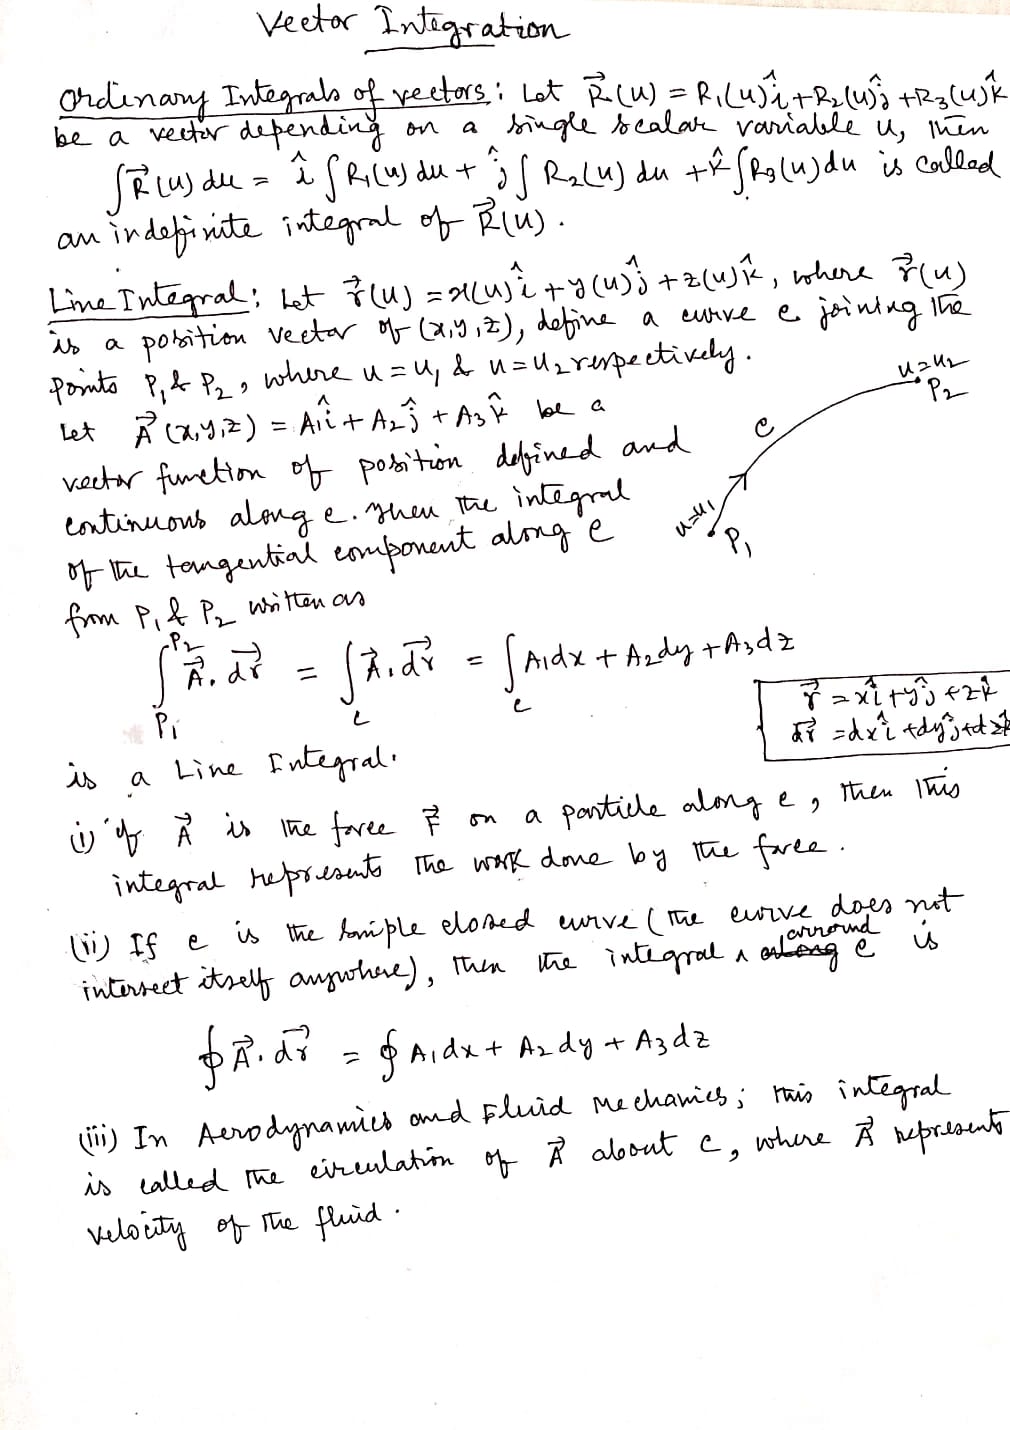 Vector Integration
Ordinary Integrals of vectors: Let R⃗(u) = R₁(u)î + R₂(u)ĵ + R₃(u)k̂
be a vector depending on a single scalar variable u, then
∫R⃗(u) du = î ∫R₁(u) du + ĵ ∫ R₂(u) du + k̂ ∫R₃(u) du is called
an indefinite integral of R⃗(u).
Line Integral: Let r⃗(u) = x(u)î + y(u)ĵ + z(u)k̂, where r⃗(u)
is a position vector of (x,y,z), define a curve c joining the
points P₁ & P₂, where u = u₁ & u = u₂ respectively.
u=u₂
P₂
Let A⃗(x,y,z) = A₁î + A₂ĵ + A₃k̂ be a
c
vector function of position defined and
continuous along c. Then the integral
u=u₁
P₁
of the tangential component along c
from P₁ & P₂ written as
∫_{P₁}^{P₂} A⃗.dr⃗ = ∫_c A⃗.dr⃗ = ∫_c A₁dx + A₂dy + A₃dz
r⃗ = xî + yĵ + zk̂
dr⃗ = dxî + dyĵ + dzk̂
is a Line Integral.
(i) if A⃗ is the force F⃗ on a particle along c, then this
integral represents the work done by the force.
(ii) If c is the simple closed curve (the curve does not
intersect itself anywhere), then the integral ∧ arround c is
∮A⃗.dr⃗ = ∮ A₁dx + A₂dy + A₃dz
(iii) In Aerodynamics and Fluid Mechanics; this integral
is called the circulation of A⃗ about c, where A⃗ represents
velocity of the fluid.